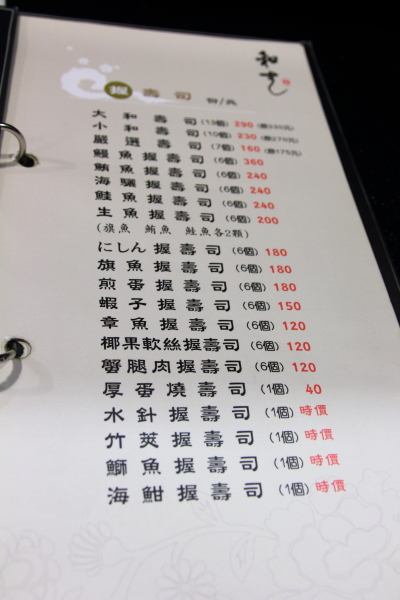 和
握 壽司 份/元
大和壽司 (13個) 290
小和壽司 (10個) 230 (原270元)
嚴選壽司 (7個) 160 (原175元)
鰻魚握壽司 (6個) 360
鮪魚握壽司 (6個) 240
海鱺握壽司 (6個) 240
鮭魚握壽司 (6個) 240
生魚握壽司 (6個) 200
(旗魚 鮪魚 鮭魚各2顆)
にしん握壽司 (6個) 180
旗魚握壽司 (6個) 180
煎蛋握壽司 (6個) 180
蝦子握壽司 (6個) 150
章魚握壽司 (6個) 120
椰果軟絲握壽司 (6個) 120
蟹腿肉握壽司 (6個) 120
厚蛋燒壽司 (1個) 40
水針握壽司 (1個) 時價
竹莢握壽司 (1個) 時價
鰤魚握壽司 (1個) 時價
海鮒握壽司 (1個) 時價